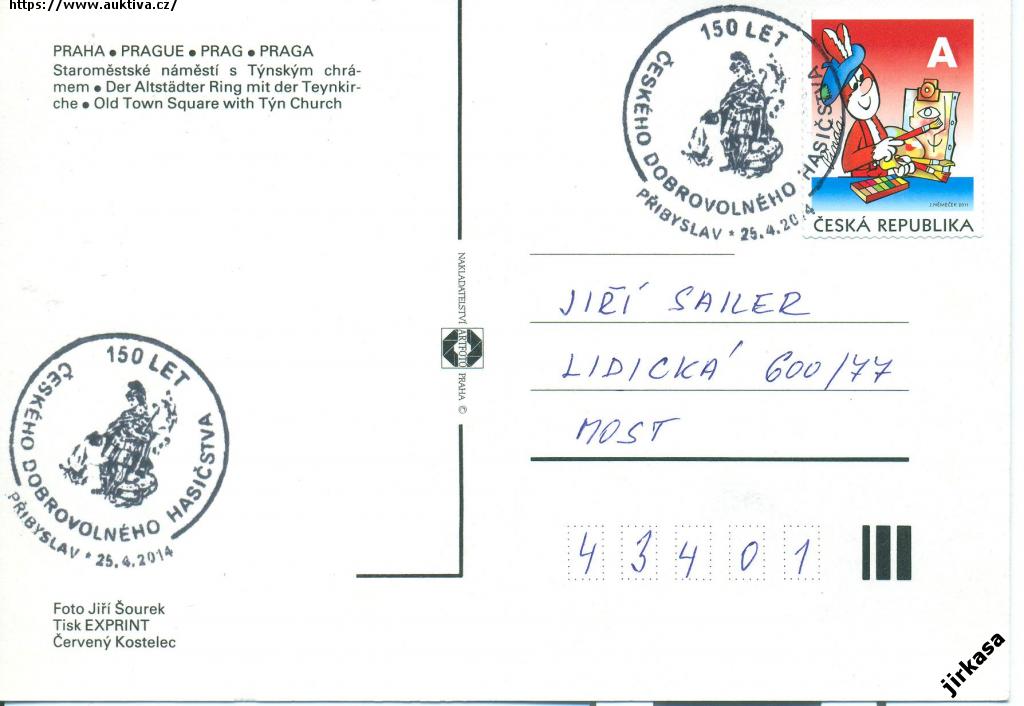 https://www.auktiva.cz/
PRAHA • PRAGUE • PRAG • PRAGA
Staroměstské náměstí s Týnským chrá-
mem • Der Altstädter Ring mit der Teynkir-
che • Old Town Square with Týn Church
150 LET
ČESKÉHO DOBROVOLNÉHO HASIČSTVA
PŘIBYSLAV * 25.4.2014
A
Pinďa
J.NĚMEČEK 2011
ČESKÁ REPUBLIKA
NAKLADATELSTVÍ ARTFOTO PRAHA ©
JIŘÍ SAILER
LIDICKÁ 600/77
MOST
43401
150 LET
ČESKÉHO DOBROVOLNÉHO HASIČSTVA
PŘIBYSLAV * 25.4.2014
Foto Jiří Šourek
Tisk EXPRINT
Červený Kostelec
jirkasa